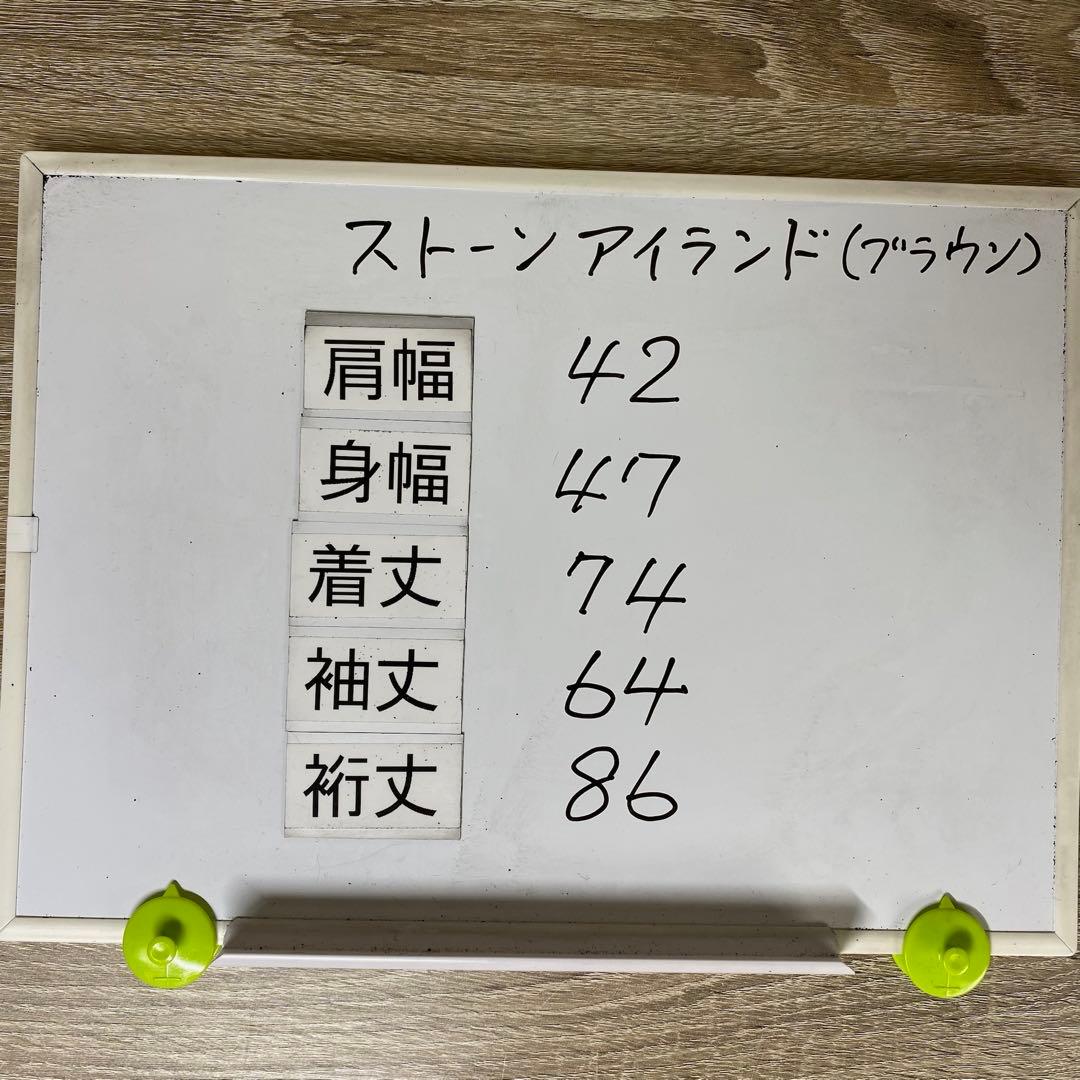 ストーンアイランド(ブラウン)
肩幅 42
身幅 47
着丈 74
袖丈 64
裄丈 86